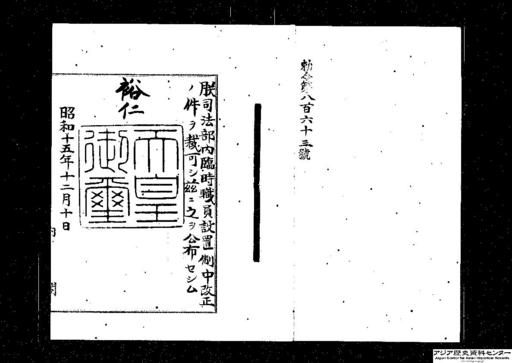 勅令第八百六十三號
朕司法部內臨時職員設置制中改正
ノ件ヲ裁可シ茲ニ之ヲ公布セシム
裕仁
天皇御璽
昭和十五年十二月十日
內閣
アジア歴史資料センター
Japan Center for Asian Historical Records